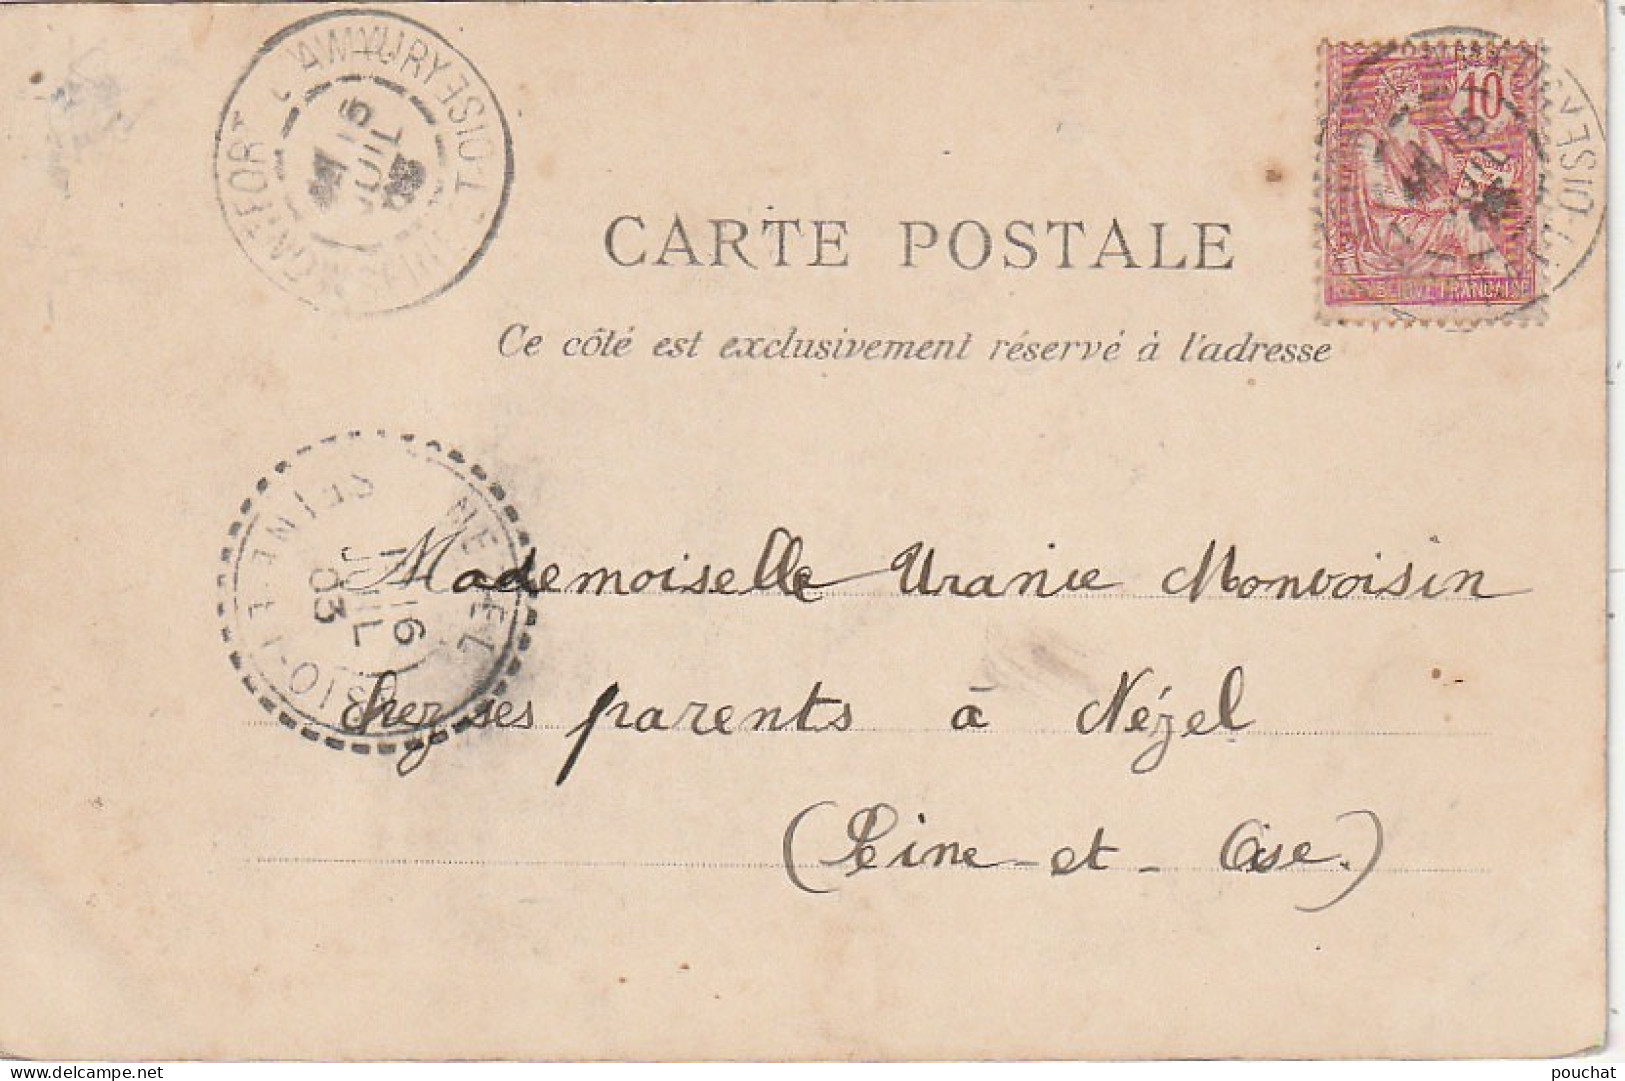 MONTFORT L'AMAURY SEINE-ET-OISE
15
JUIL
10
REPUBLIQUE FRANÇAISE
SEINE-ET-OISE
CARTE POSTALE
Ce côté est exclusivement réservé à l'adresse
NEZEL
SEINE-ET-OISE
16
JUIL
03
Mademoiselle Uranie Monvoisin
chez ses parents à Nézel
(Seine-et-Oise.)
pouchat